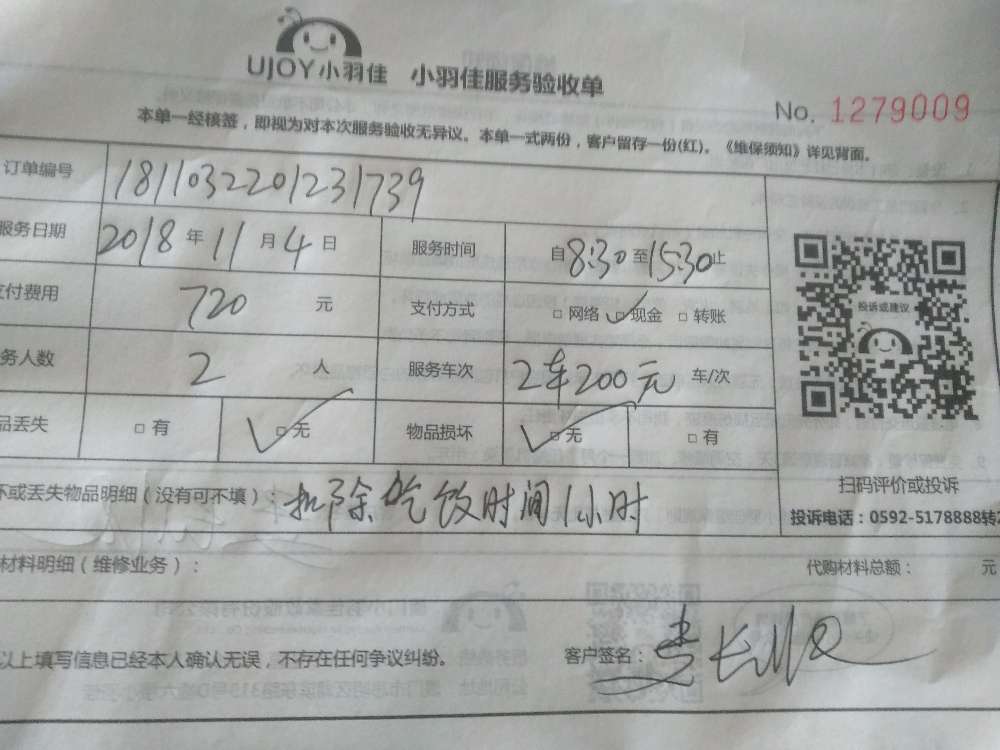 UJOY小羽佳 小羽佳服务验收单
No. 1279009
本单一经核签，即视为对本次服务验收无异议。本单一式两份，客户留存一份(红)。《维保须知》详见背面。
订单编号 1811032201231739
服务日期 2018 年 11 月 4 日 服务时间 自 8:30 至 15:30 止
支付费用 720 元 支付方式 □ 网络 □ 现金 □ 转账
务人数 2 人 服务车次 2车200元 车/次
品丢失 □ 有 □ 无 物品损坏 □ 无 □ 有
投诉或建议
扫码评价或投诉
投诉电话：0592-5178888转
坏或丢失物品明细（没有可不填）： 扣除吃饭时间1小时
材料明细（维修业务）： 代购材料总额： 元
以上填写信息已经本人确认无误，不存在任何争议纠纷。 客户签名：